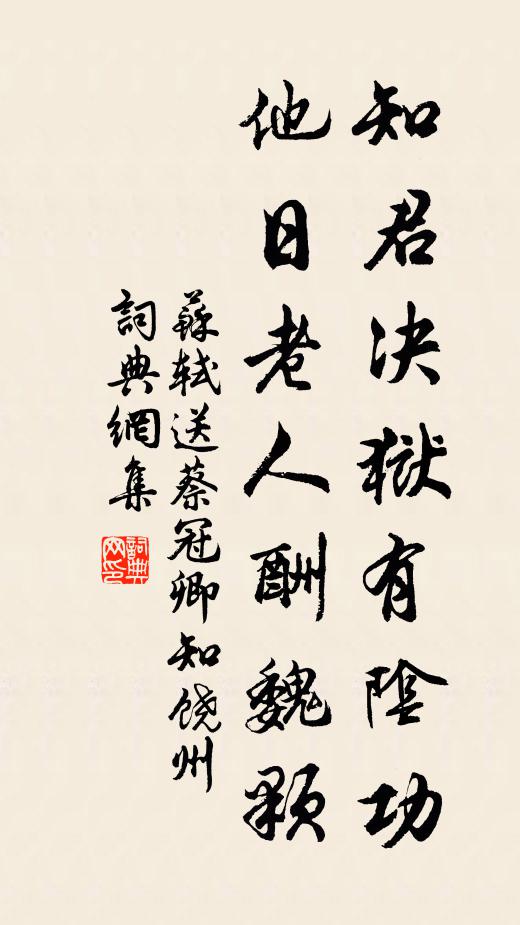 知君决獄有陰功
他日老人酬魏顆
蘇軾送蔡冠卿知饶州
詞典網集
詞典网印